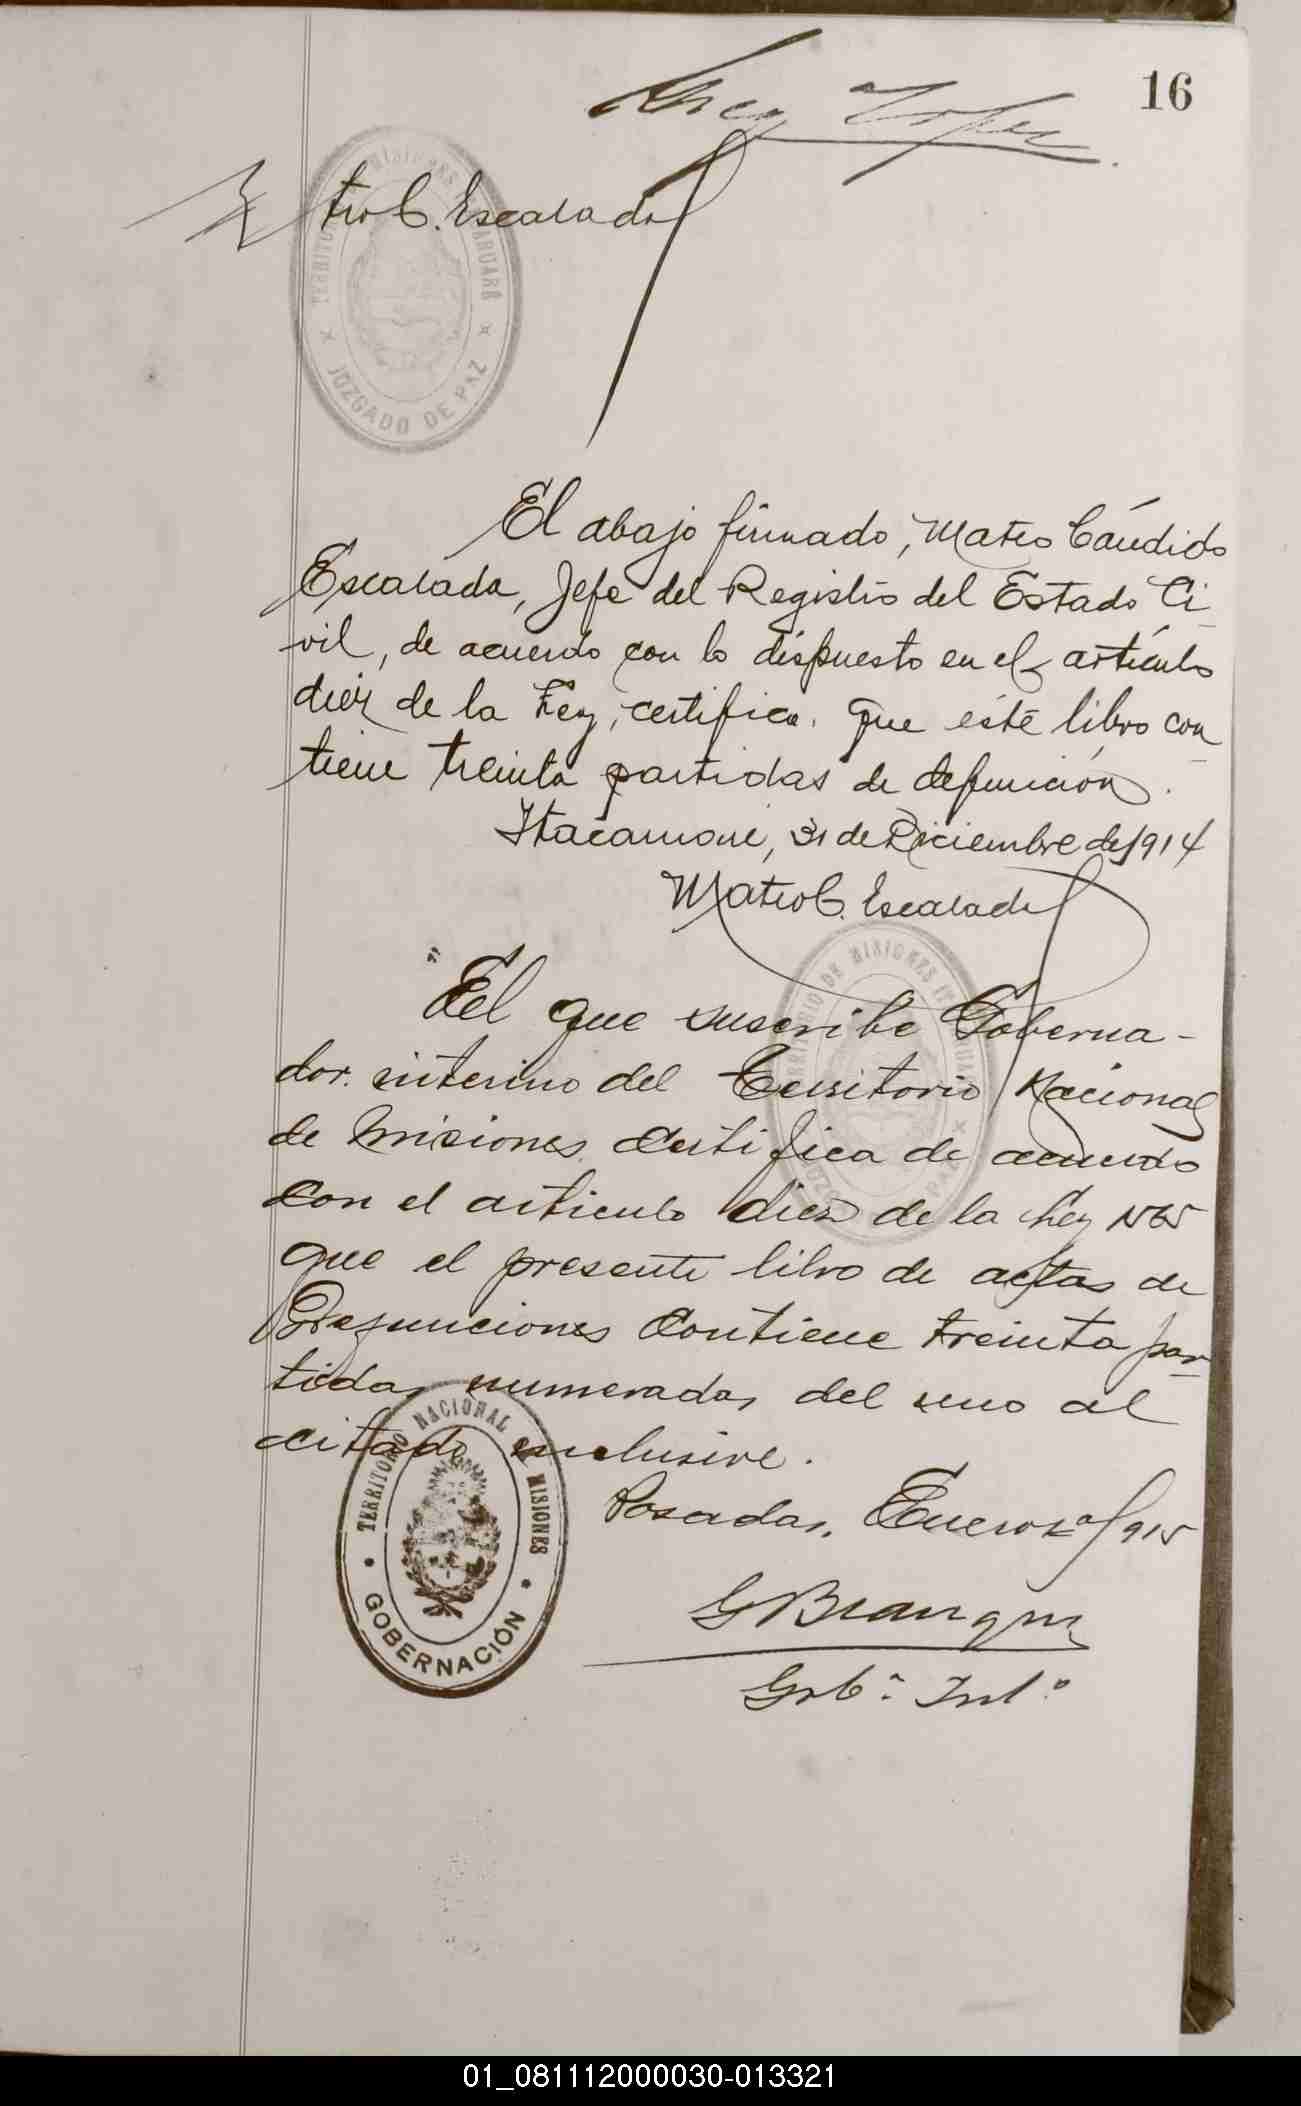 16
Lopez
teo C. Escalada
TERRITORIO DE MISIONES ITACARUARÉ
JUZGADO DE PAZ
El abajo firmado, Mateo Cándido
Escalada, Jefe del Registro del Estado Ci-
vil, de acuerdo con lo dispuesto en el artículo
diez de la Ley, certifica que éste libro con-
tiene treinta partidas de defunción.
Itacaruaré, 31 de Diciembre de 1914
Mateo C. Escalada
TERRITORIO DE MISIONES ITACARUARÉ
JUZGADO DE PAZ
El que suscribe Goberna-
dor interino del Territorio Nacional
de Misiones certifica de acuerdo
con el articulo diez de la Ley 1565
que el presente libro de actas de
Defunciones contiene treinta par-
tidas numeradas del uno al
citado inclusive.
Posadas, Enero 1915
TERRITORIO NACIONAL DE MISIONES
GOBERNACIÓN
Gobr. Int.o
01_081112000030-013321